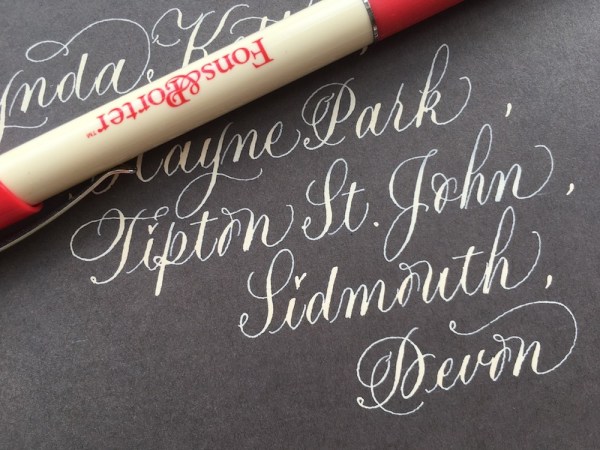 ynda
Fons&Porter™
Hayne Park ,
Tipton St. John ,
Sidmouth ,
Devon